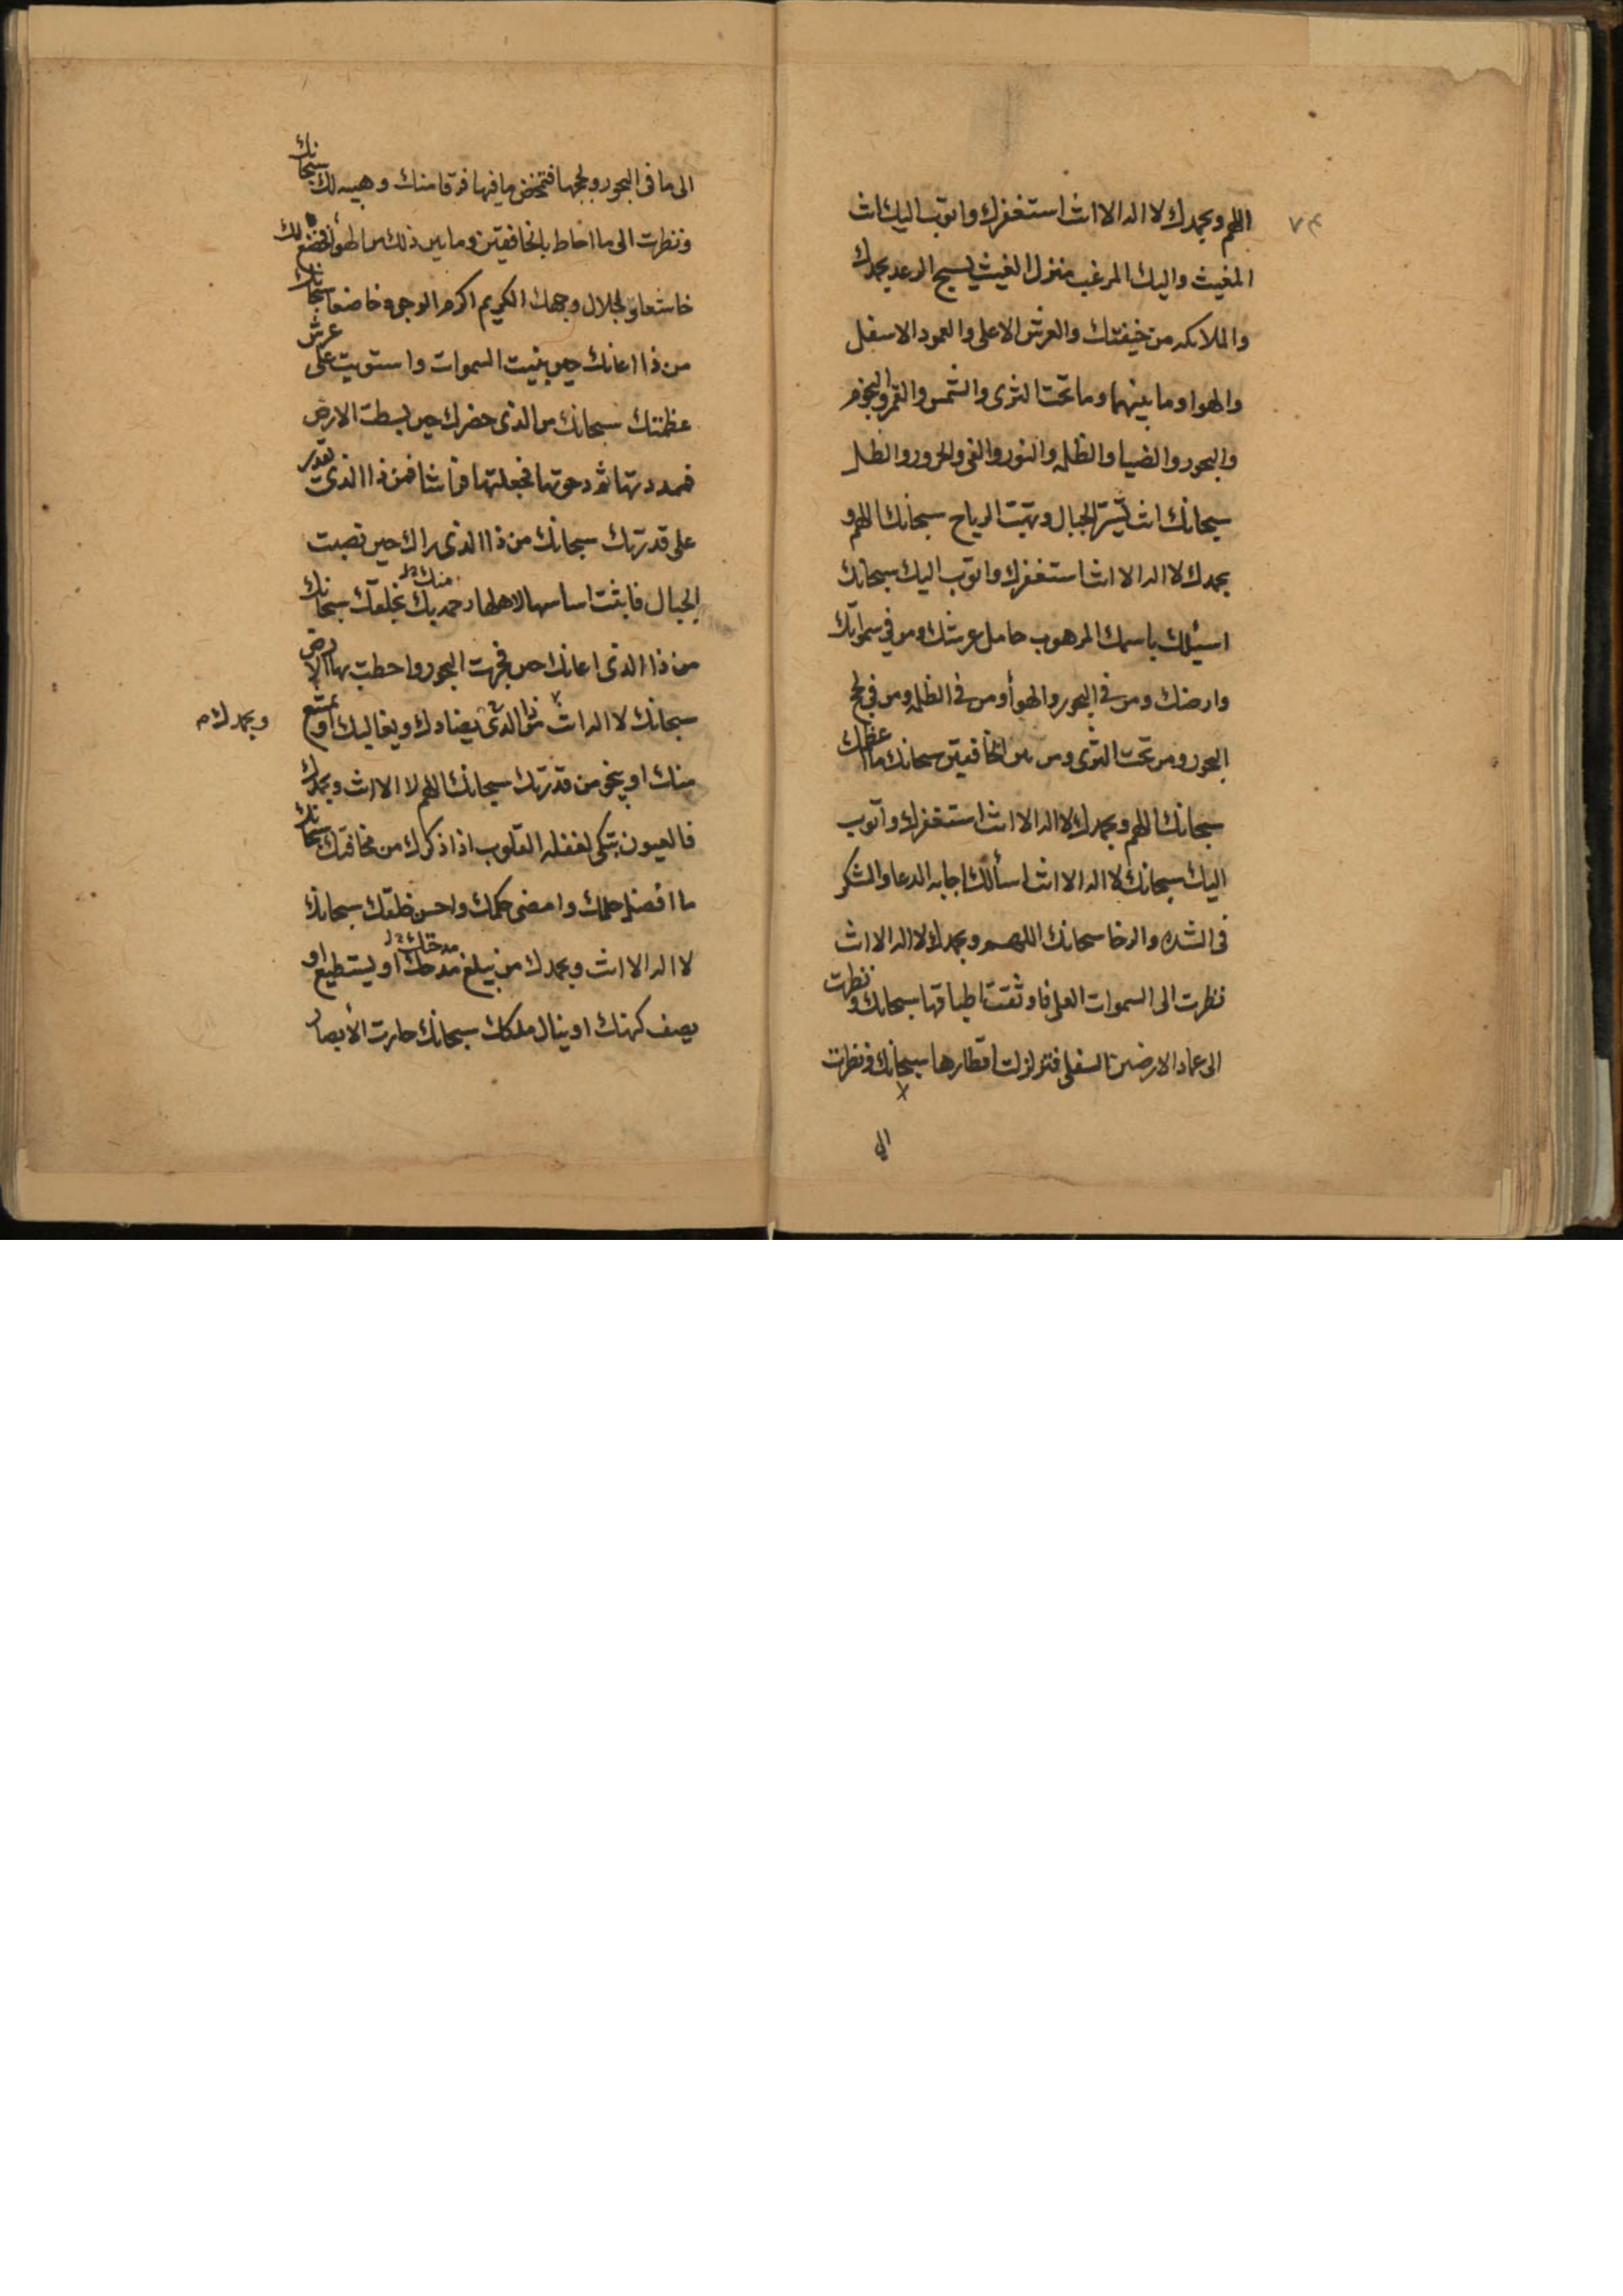 ٧٣
اللهم وبحمدك لا اله الا انت استغفرك واتوب اليك انت
المغيث واليك المرغب منزل الغيث يسبح الرعد بحمدك
والملائكه من خيفتك والعرش الاعلى والعمود الاسفل
والهوا وما بينهما وما تحت الثرى والشمس والقمر والنجوم
والبحور والضيا والظلمه والنور والفى والحرور والظل
سبحانك انت تسير الجبال وتهب الرياح سبحانك اللهم و
بحمدك لا اله الا انت استغفرك واتوب اليك سبحانك
اسئلك باسمك المرهوب حامل عرشك ومن في سمواتك
وارضك ومن في البحور والهوأ ومن في الظلمه ومن في لج
البحور ومن تحت الثرى ومن بين الخافقين سبحانك ما اعظمك
سبحانك اللهم وبحمدك لا اله الا انت استغفرك واتوب
اليك سبحانك لا اله الا انت اسألك اجابه الدعا والشكر
فى الشده والرخا سبحانك اللهم وبحمدك لا اله الا انت
نظرت الى السموات العلى فاوثقت اطباقها سبحانك ونظرت
الى عماد الارضين السفلى فتزلزلت اقطارها سبحانك ونظرت
الى
الى ما فى البحور ولججها فتمخض ما فيها فرقا منك وهيبه لك سبحانك
ونظرت الى ما احاط بالخافقين وما بين ذلك من الهوأ فخضع لك
خاشعا ولجلال وجهك الكريم اكرم الوجوه خاضعا سبحانك
من ذا اعانك حين بنيت السموات واستويت على عرش
عظمتك سبحانك من الذى حضرك حين بسطت الارض
فمددتها ثم دحوتها فجعلتها فراشا فمن ذا الذى يقدر
على قدرتك سبحانك من ذا الذى يراك حين نصبت
الجبال فاثبت اساسها لاهلها رحمه منك بخلقك سبحانك
من ذا الذى اعانك حين فجرت البحور واحطت بها الارض
سبحانك لا اله الا انت وبحمدك من ذا الذى يضادك ويغاليك او يمتنع
منك او ينجو من قدرتك سبحانك اللهم لا اله الا انت وبحمدك
فالعيون تبكى لغفله القلوب اذا ذكرك من مخافتك سبحانك
ما افضل حلمك وامضى حكمك واحسن خلقك سبحانك
لا اله الا انت وبحمدك من يبلغ مدحك او يستطيع او
يصف كنهك او ينال ملكك سبحانك حارت الأبصار